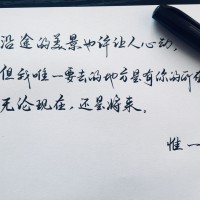 沿途的美景也许让人心动，
但我唯一要去的地方是有你的所在
无论现在，还是将来。
惟一